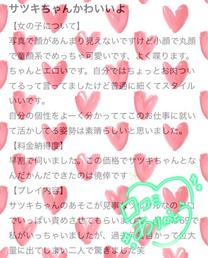 サツキちゃんかわいいよ
【女の子について】
写真で顔があんまり見えないですけど小顔で丸顔
で童顔系でめっちゃ可愛いです、よく喋ります。
ちゃんとエロいです。自分ではちょっとお肉つい
てるって言ってましたけど普通に細くてスタイル
いいです。
自分の個性をよーく分かっててこのお仕事に就い
て活かしてる姿勢は素晴らしいと思いました。
【料金納得度】
早割で伺いましたがこの価格でサツキちゃんとな
んだかんだできたのは僥倖です
【プレイ内容】
サツキちゃんのあそこが見事
でいっぱい責めさせてもらいま
私がいっちゃいましたが、過去
大量に出てしまい二人で驚きました笑